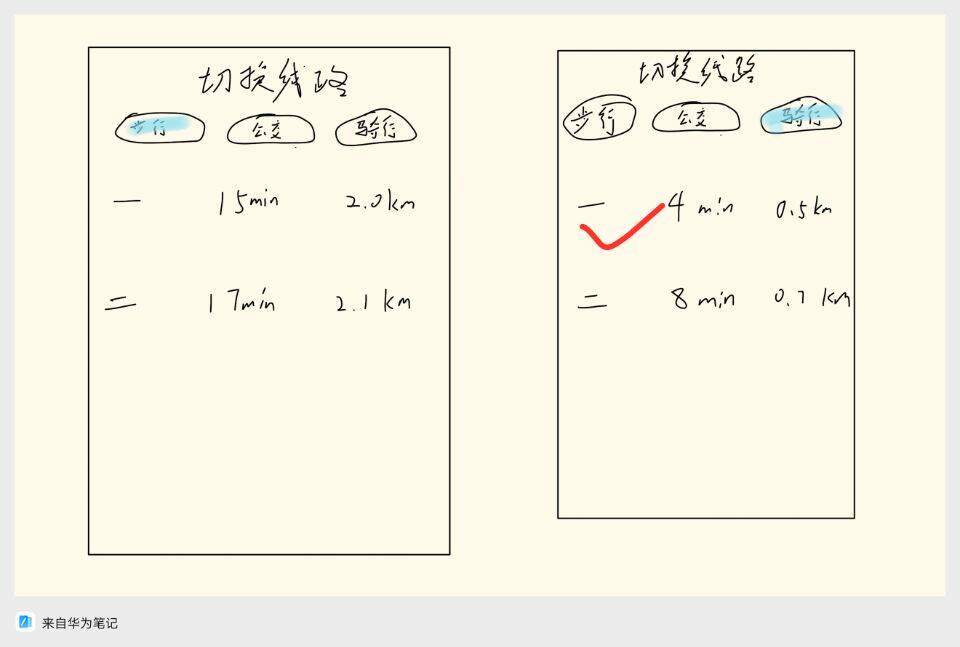 切换线路
步行 公交 骑行
一 15min 2.0km
二 17min 2.1km
切换线路
步行 公交 骑行
一 4min 0.5km
二 8min 0.7km
来自华为笔记